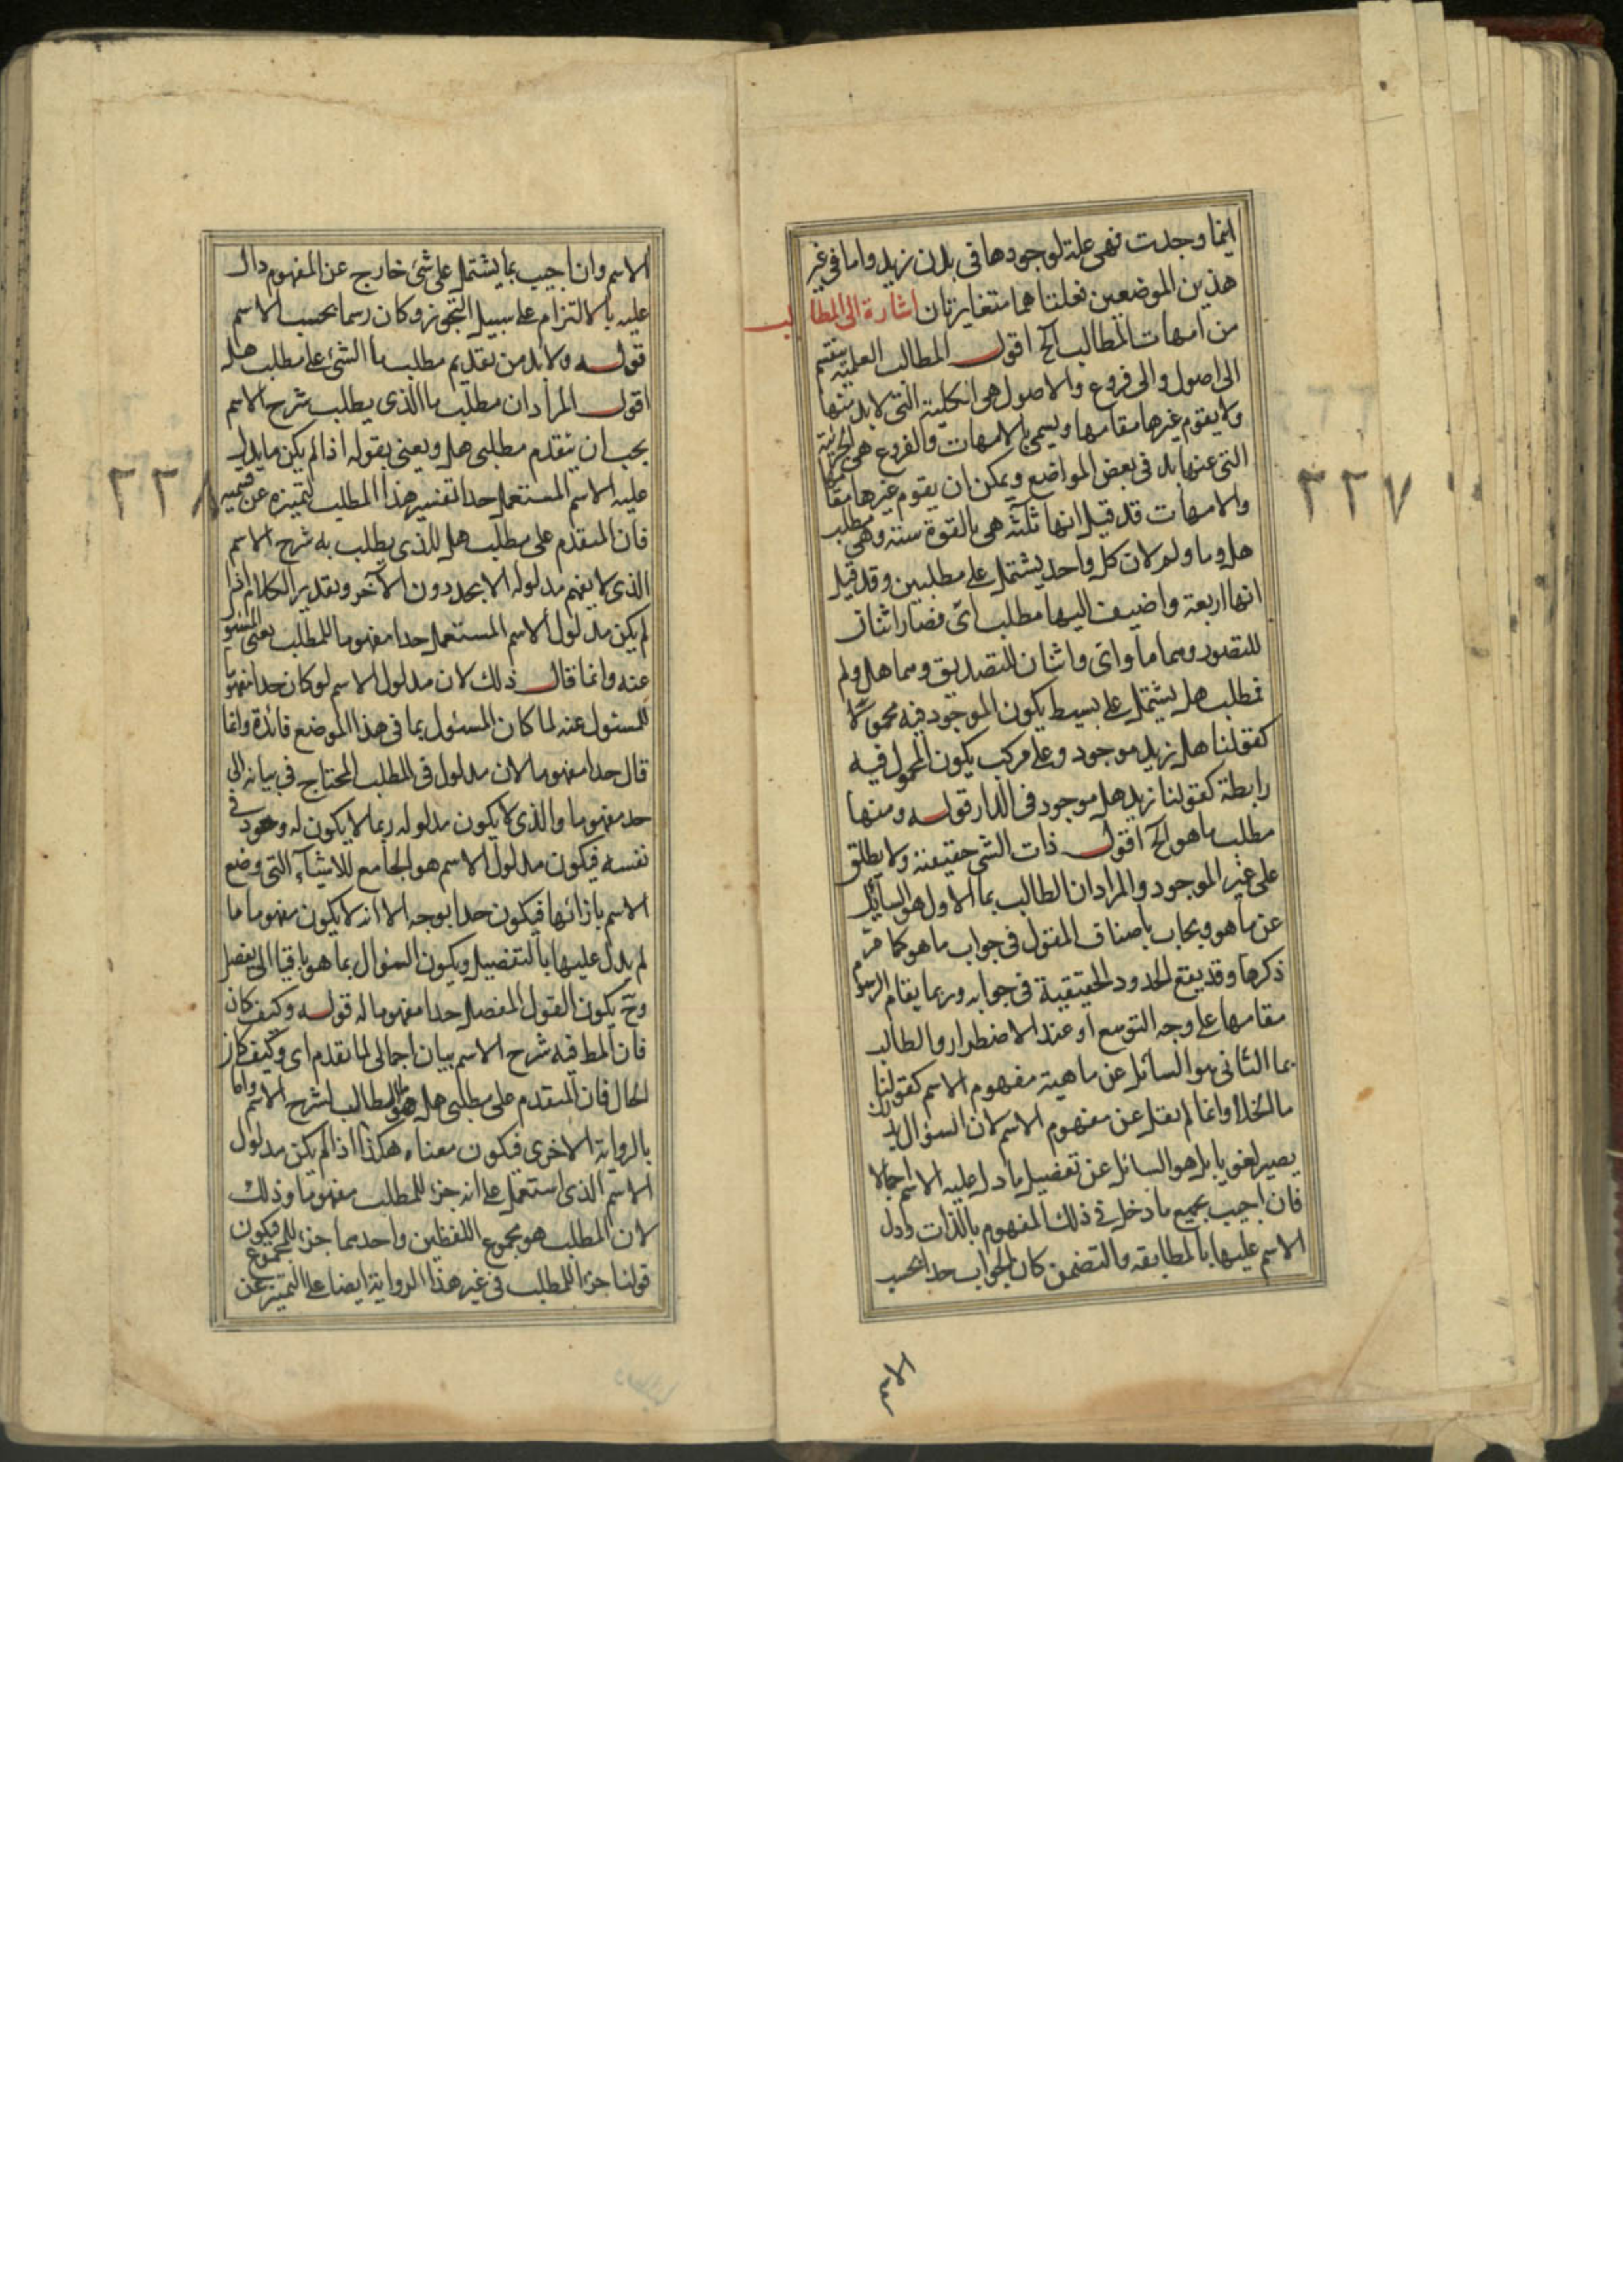 اينما وجدت فهى علة لوجودها فى بدن زيد واما فى غير
هذين الموضعين فعلتاهما متغايرتان اشارة الى المطالب
من امهات المطالب الخ اقول المطالب العلمية ينقسم
الى اصول والى فروع والاصول هى الكلية التى لابد منها
ولا يقوم غيرها مقامها ويسمى بالامهات والفروع هى الجزئية
التى عنها بد فى بعض المواضع ويمكن ان يقوم غيرها مقامها
والامهات قد قيل انها ثلثه هى بالقوة ستة وهى مطلب
هل وما ولم لان كل واحد يشتمل على مطلبين وقد قيل
انها اربعة واضيف اليها مطلب اى فصار اثنان
للتصور وهما ما واى واثنان للتصديق وهما هل ولم
فمطلب هل يشتمل على بسيط يكون الموجود فيه محمولا
كقولنا هل زيد موجود وعلى مركب يكون المحمول فيه
رابطة كقولنا زيد هل موجود فى الدار قوله ومنها
مطلب ما هو الخ اقول ذات الشى حقيقته ولا يطلق
على غير الموجود والمراد ان الطالب بما الاول هو السائل
عن ما هو ويجاب باصناف المقول فى جواب ما هو كما مر
ذكرها وقد يقع الحدود الحقيقية فى جوابه وربما يقام الرسوم
مقامها على وجه التوسع او عند الاضطرار والطالب
بما الثانى هو السائل عن ماهية مفهوم الاسم كقولنا
ما الخلا وانما لم يقل عن مفهوم الاسم لان السؤال بذلك
يصير لغويا بل هو السائل عن تفصيل ما دل عليه الاسم اجمالا
فان اجيب بجميع ما دخل فى ذلك المفهوم بالذات ودل
الاسم عليها بالمطابقه والتضمن كان الجواب حدا بحسب
٢٢٧
الاسم وان اجيب بما يشتمل على شئ خارج عن المفهوم دال
عليه بالالتزام على سبيل التجوز وكان رسما بحسب الاسم
قوله ولابد من تقديم مطلب ما الشئ على مطلب هل
اقول المراد ان مطلب ما الذى يطلب شرح الاسم
يجب ان يتقدم مطلبى هل ويعنى بقوله اذا لم يكن ما يدل
عليه الاسم المستعمل حدا تفسير هذا المطلب لتميزه عن قسميه
فان المتقدم على مطلب هل للذى يطلب به شرح الاسم
الذى لا يفهم مدلوله الا بحد دون الآخر وتقدير الكلام اذا
لم يكن مدلول الاسم المستعمل حدا مفهوما للمطلب يعنى المسئول
عنه وانما قال ذلك لان مدلول الاسم لو كان حدا مفهوما
للمسئول عنه لما كان المسئول بما فى هذا الموضع فائدة وانما
قال حدا مفهوما لان مدلول فى المطلب المحتاج فى بيانه الى
حد مفهوما والذى لا يكون مدلوله ربما لا يكون له وجود فى
نفسه فيكون مدلول الاسم هو الجامع للاشياء التى وضع
الاسم بازائها فيكون حدا بوجه الا انه لا يكون مفهوما ما
لم يدل عليها بالتفصيل ويكون السئوال بما هو باقيا الى يفصل
وح يكون القول المفصل حدا مفهوما له قوله وكيف كان
فان المط فيه شرح الاسم بيان اجمالى لما تقدم اى وكيف كان
الحال فان المتقدم على مطلبى هل هو المطالب لشرح الاسم واما
بالرواية الاخرى فيكون معناه هكذا اذا لم يكن مدلول
الاسم الذى استعمل على انه جزء للمطلب مفهوما وذلك
لان المطلب هو مجموع اللفظين واحدهما جزء للمجموع فيكون
قولنا جزء للمطلب فى غير هذا الرواية ايضا على التميز عن
٢٢٨